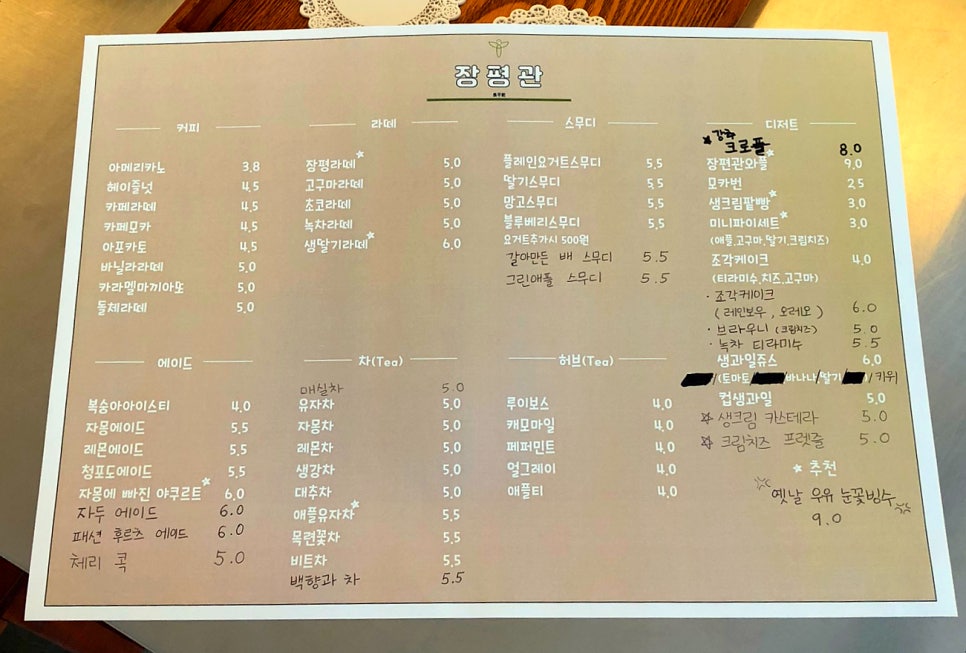 장평관
커피
아메리카노 3.8
헤이즐넛 4.5
카페라떼 4.5
카페모카 4.5
아포카토 4.5
바닐라라떼 5.0
카라멜마끼아또 5.0
돌체라떼 5.0
라떼
장평라떼 5.0
고구마라떼 5.0
초코라떼 5.0
녹차라떼 5.0
생딸기라떼 6.0
스무디
플레인요거트스무디 5.5
딸기스무디 5.5
망고스무디 5.5
블루베리스무디 5.5
요거트추가시 500원
갈아만든 배 스무디 5.5
그린애플 스무디 5.5
디저트
강추
크로플 8.0
장편관와플 9.0
모카번 2.5
생크림팥빵 3.0
미니파이세트 3.0
(애플,고구마,딸기,크림치즈)
조각케이크 4.0
(티라미수,치즈,고구마)
· 조각케이크
( 레인보우 , 오레오 ) 6.0
· 브라우니 (크림치즈) 5.0
· 녹차 티라미수 5.5
생과일쥬스 6.0
/(토마토/ 바나나/딸기/ /키위
컵생과일 5.0
☆ 생크림 카스테라 5.0
☆ 크림치즈 프렛즐 5.0
★ 추천
옛날 우유 눈꽃빙수
9.0
에이드
복숭아아이스티 4.0
자몽에이드 5.5
레몬에이드 5.5
청포도에이드 5.5
자몽에 빠진 야쿠르트 6.0
자두 에이드 6.0
패션 후르츠 에이드 6.0
체리 콕 5.0
차(Tea)
매실차 5.0
유자차 5.0
자몽차 5.0
레몬차 5.0
생강차 5.0
대추차 5.0
애플유자차 5.5
목련꽃차 5.5
비트차 5.5
백향과 차 5.5
허브(Tea)
루이보스 4.0
캐모마일 4.0
페퍼민트 4.0
얼그레이 4.0
애플티 4.0